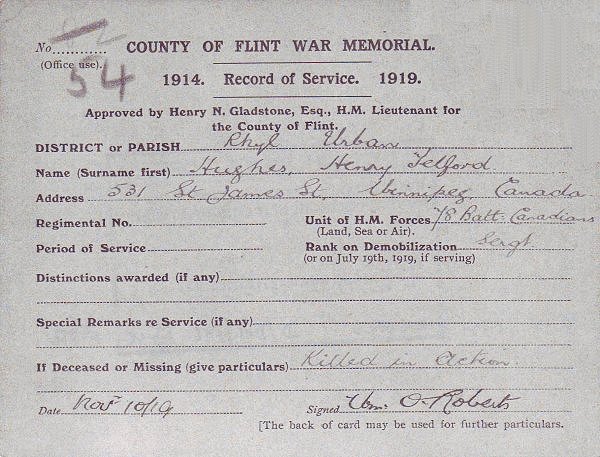 No............ COUNTY OF FLINT WAR MEMORIAL.
(Office use). 54
1914. Record of Service. 1919.
Approved by Henry N. Gladstone, Esq., H.M. Lieutenant for
the County of Flint.
DISTRICT OR PARISH Rhyl Urban
Name (Surname first) Hughes, Henry Telford
Address 531 St James St, Winnipeg, Canada
Regimental No. Unit of H.M. Forces 78 Batt. Canadians
(Land, Sea or Air).
Period of Service Rank on Demobilization Sergt
(or on July 19th, 1919, if serving)
Distinctions awarded (if any)
Special Remarks re Service (if any)
If Deceased or Missing (give particulars) Killed in Action
Date Nov 10/19 Signed Wm. O. Roberts
[The back of card may be used for further particulars.